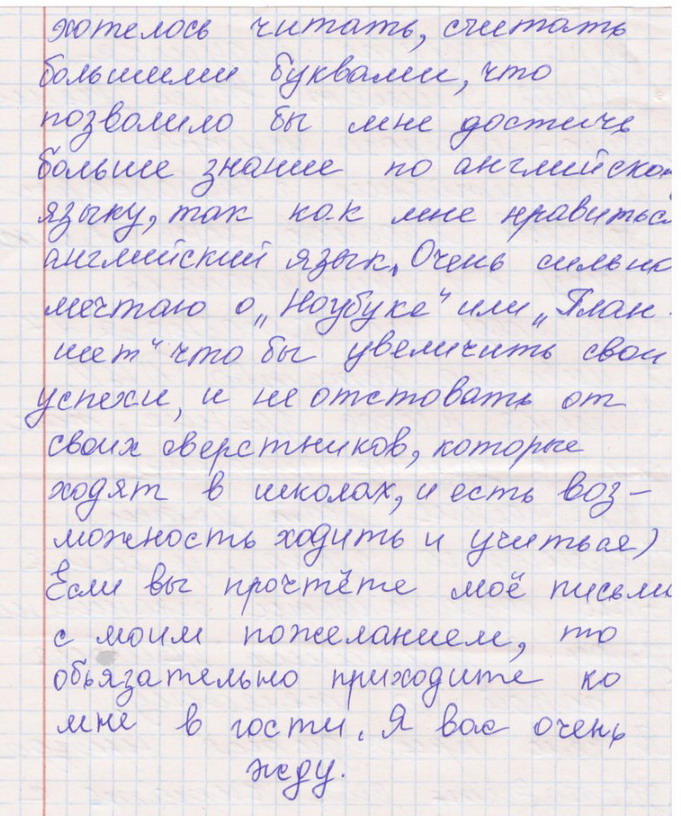 хотелось читать, считать
большими буквами, что
позволило бы мне достичь
больше знание по английско
языку, так как мне нравитьс
английский язык. Очень сильно
мечтаю о „Ноубуке“ или „План
шет“ что бы увеличить свои
успехи, и не отстовать от
своих сверстников, которые
ходят в школах, и есть воз-
можность ходить и учиться)
Если вы прочтёте моё письмо
с моим пожеланием, то
обьязательно приходите ко
мне в гости. Я вас очень
жду.